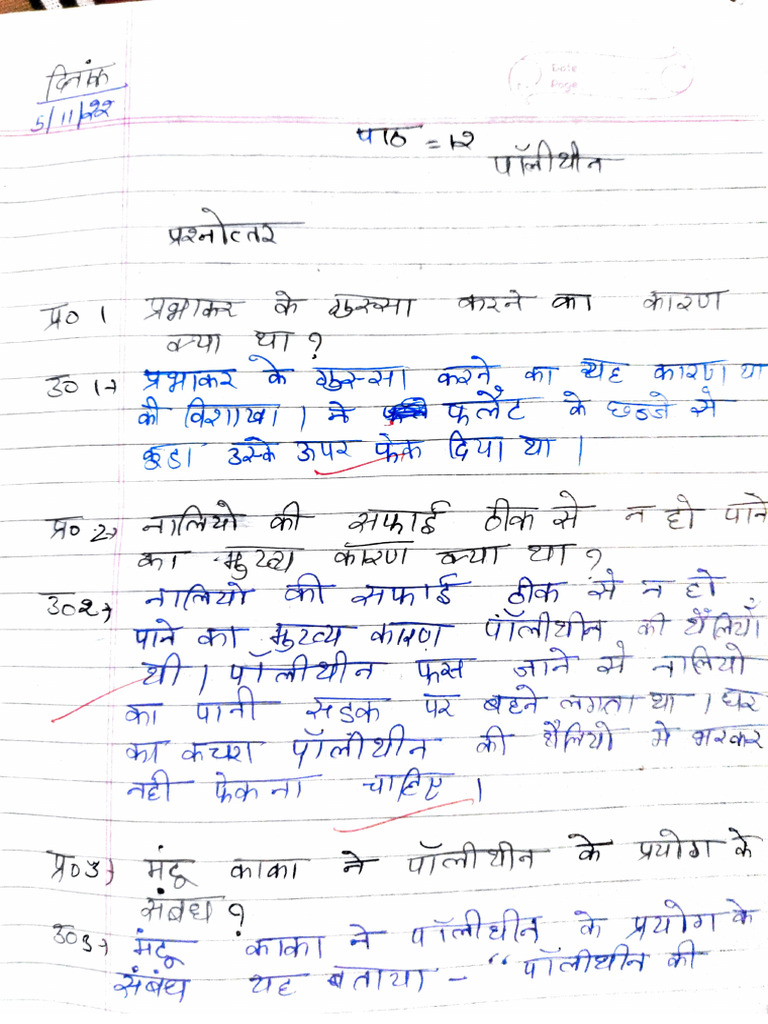 दिनांक
5/11/22
Date
Page
पाठ = 12
पॉलीथीन
प्रश्नोत्तर
प्र० 1 प्रभाकर के गुस्सा करने का कारण
क्या था ?
उ० 1→ प्रभाकर के गुस्सा करने का यह कारण था
की विशाखा । ने फ्लैट के छज्जे से
कूडा उस्के ऊपर फेक दिया था ।
प्र० 2→ नालियो की सफाई ठीक से न हो पाने
का मुख्य कारण क्या था ?
उ० 2→ नालियो की सफाई ठीक से न हो
पाने का मुख्य कारण पॉलीथीन की थैलियाँ
थी । पॉलीथीन फस जाने से नालियो
का पानी सडक पर बहने लगता था । घर
का कचरा पॉलीथीन की थैलियो मे भरकर
नही फेकना चाहिए ।
प्र० 3→ मंटू काका ने पॉलीथीन के प्रयोग के
संबंध ?
उ० 3→ मंटू काका ने पॉलीथीन के प्रयोग के
संबंध यह बताया - “पॉलीथीन की